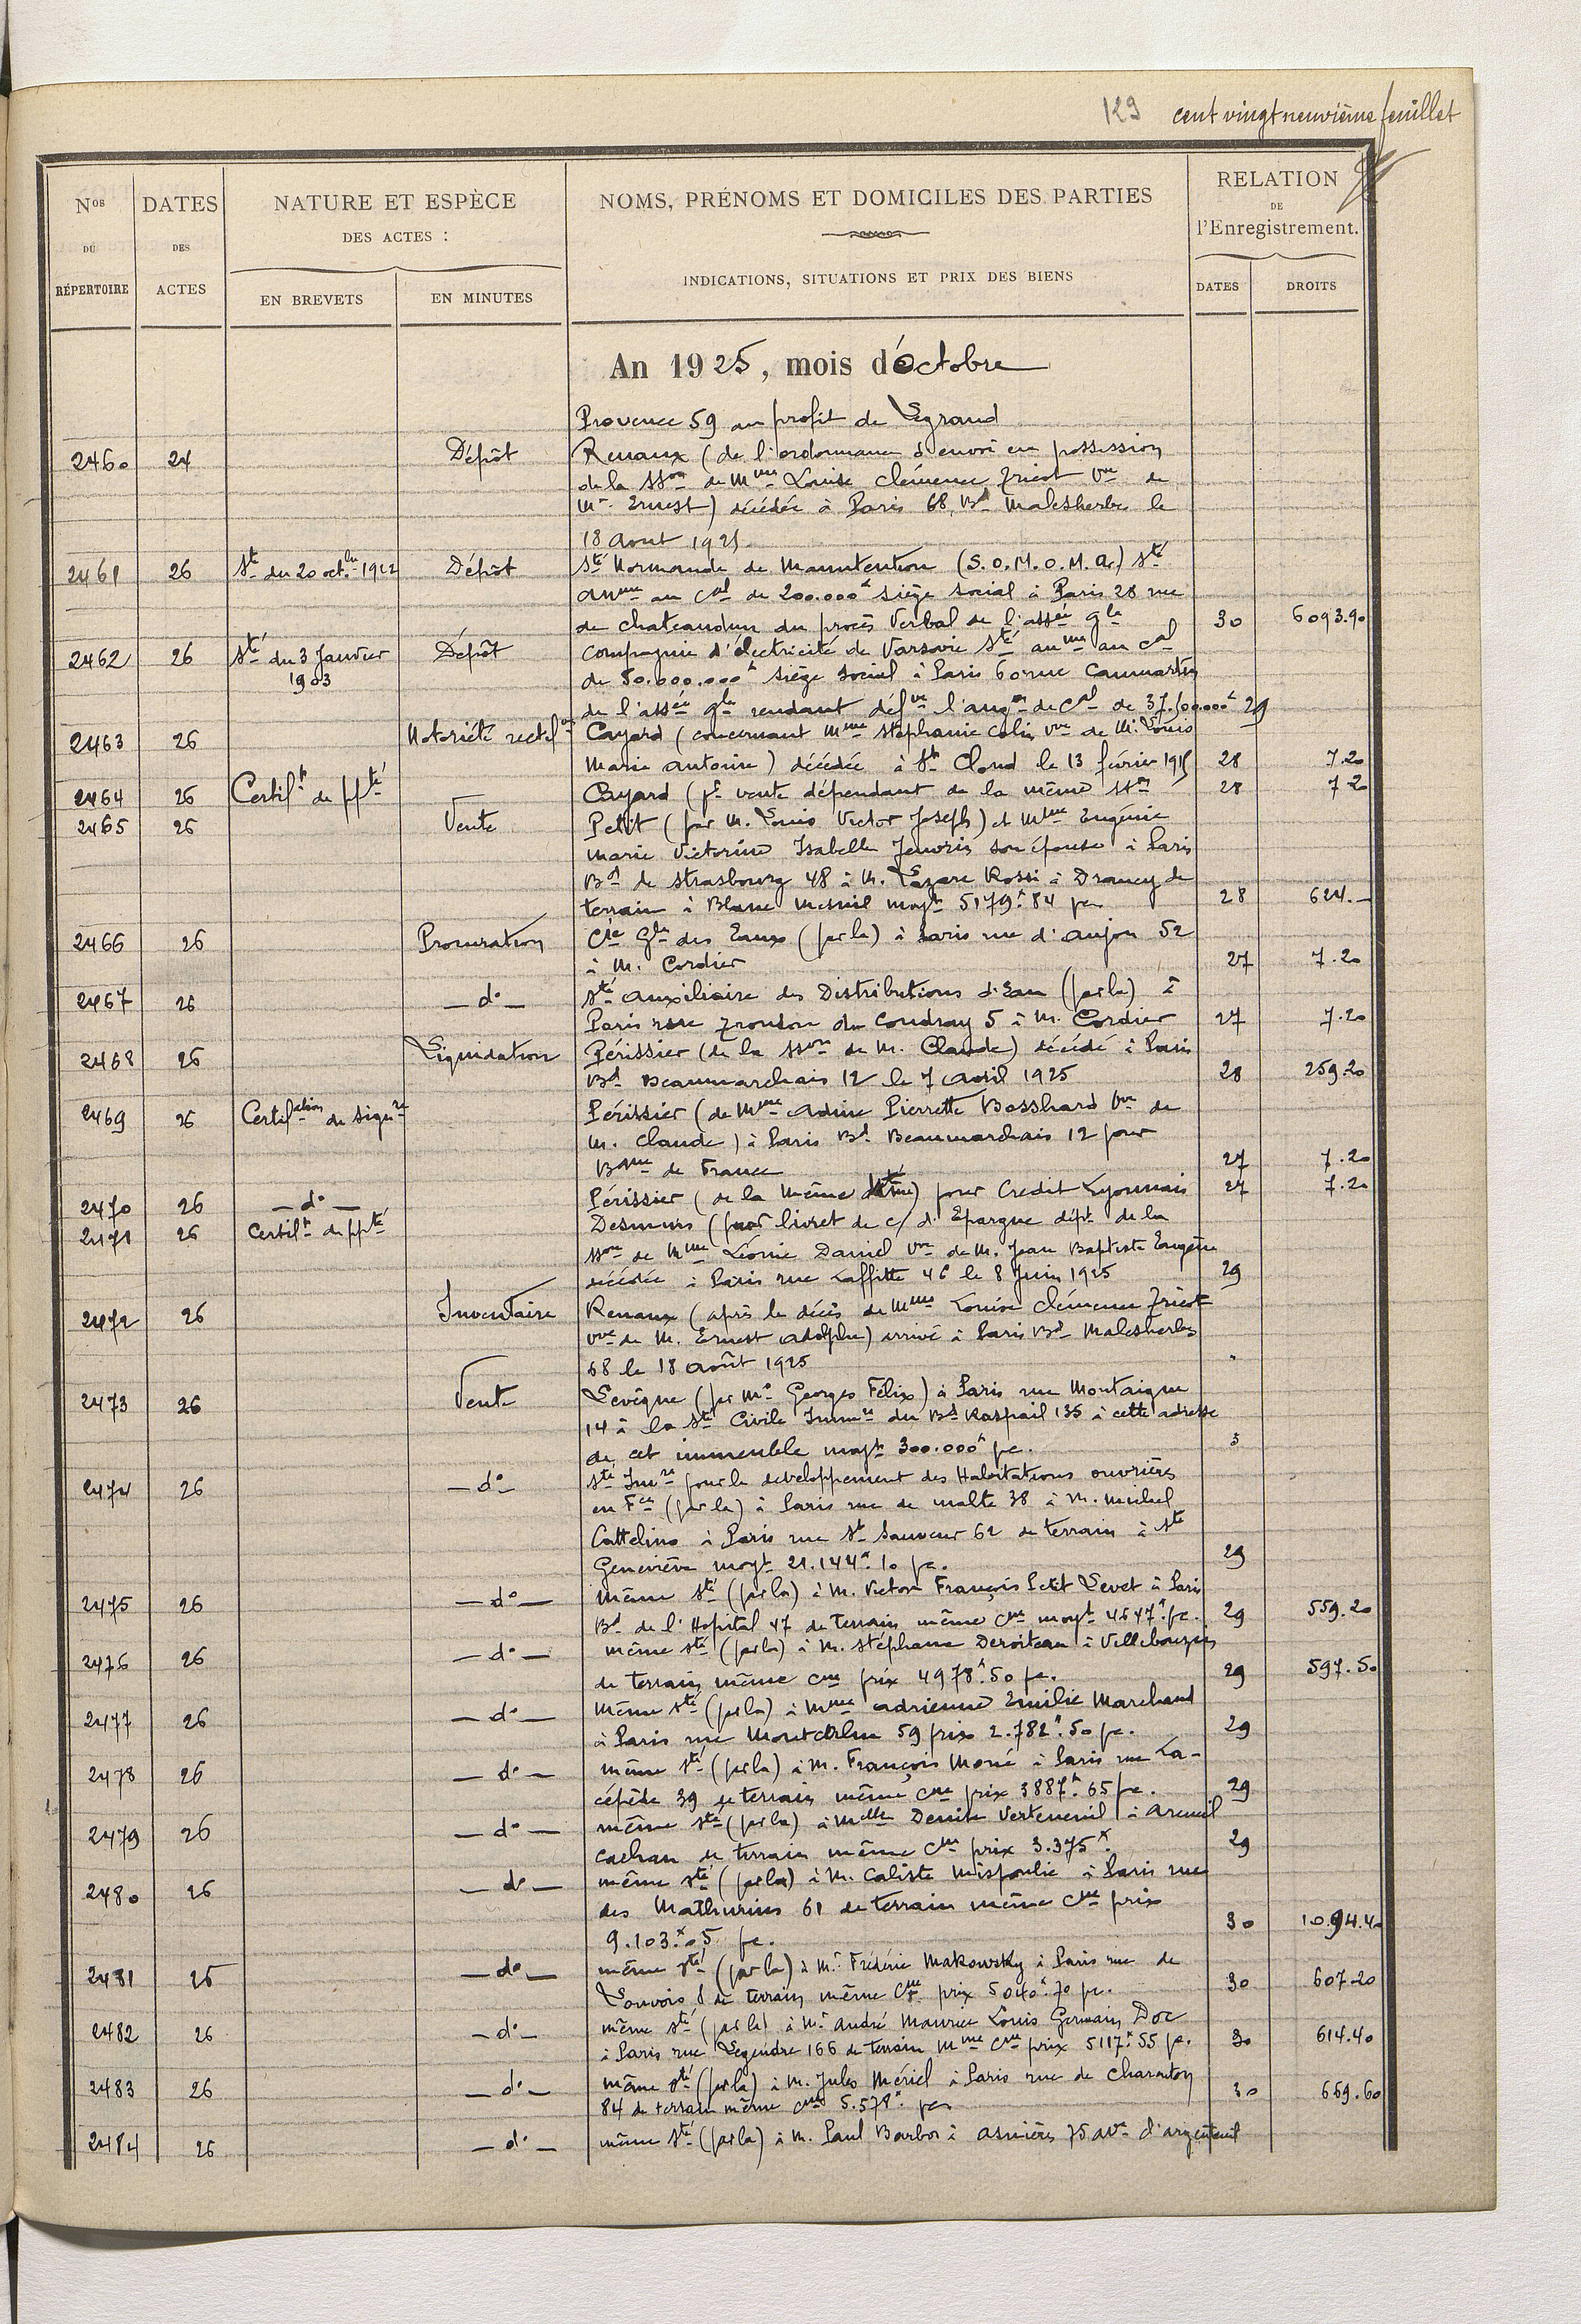 129 cent vingt neuvième feuillet
Nos DU RÉPERTOIRE
DATES DES ACTES
NATURE ET ESPÈCE DES ACTES :
EN BREVETS
EN MINUTES
NOMS, PRÉNOMS ET DOMICILES DES PARTIES
INDICATIONS, SITUATIONS ET PRIX DES BIENS
RELATION DE l'Enregistrement.
DATES
DROITS
An 1925, mois d'Octobre
Provence 59 au profit de Legrand
2460 24 Dépôt Renaux (de l'ordonnance d'envoi en possession
de la sson de Mme Louise Clémence Fricot Vve de
Mr Ernest) décédée à Paris 68, Bd Malesherbes le
18 Août 1925
2461 26 Sté du 20 octbre 1922 Dépôt Sté Normande de Manutention (S.O.M.O.M.A.) Sté
anme au cal de 200.000f siège social à Paris 28 rue
de chateaudun du procès verbal de l'assée gle 30 6093.90
2462 26 Sté du 3 Janvier Dépôt Compagnie d'électricité de Varsovie Sté anme au cal
1903 de 50.000.000f siège social à Paris 60 rue Caumartin
de l'assée gle rendant défve l'augon de cal de 37.500.000f 29
2463 26 Notoriété rectifve Cayard (concernant Mme Stéphanie Colin vve de M. Louis
Marie Antoine) décédée à St Cloud le 13 février 1915 28 7.20
2464 26 Certift de ppté Cayard (pr vente dépendant de la même sson 28 7.20
2465 26 Vente Petit (par M. Louis Victor Joseph) et Mme Eugénie
Marie Victorine Isabelle son épouse à Paris
Bd de Strasbourg 48 à M. Lazare Rossi à Drancy de
terrain à Blanc Mesnil moyt 5179f.84 pc 28 624.-
2466 26 Procuration Cie Gle des Eaux (par la) à Paris rue d'Anjou 52
à M. Cordier 27 7.20
2467 26 -do- Sté Auxiliaire des Distributions d'Eau (par la) à
Paris rue Tronson du Coudray 5 à M. Cordier 27 7.20
2468 26 Liquidation Périssier (de la sson de M. Claude) décédé à Paris
Bd Beaumarchais 12 le 7 Avril 1925 28 259.20
2469 26 Certifation de signre Périssier (de Mme Adine Pierrette Bosshard Vve de
M. Claude) à Paris Bd Beaumarchais 12 pour
Bque de France 27 7.20
2470 26 -do- Périssier (de la même ) pour Crédit Lyonnais 27 7.20
2471 26 Certift de ppté Desmurs (pour livret de c/ d'Epargne dépt de la
sson de Mme Léonie Daniel Vve de M. Jean Baptiste Eugène
décédée à Paris rue Laffitte 46 le 8 Juin 1925 29
2472 26 Inventaire Renaux (après le décès de Mme Louise Clémence Fricot
vve de M. Ernest Adolphe) arrivé à Paris Bd Malesherbes
68 le 18 Août 1925 "
2473 26 Vente Levêque (par Mr Georges Félix) à Paris rue Montaigne
14 à la Sté Civile Immre du Bd Raspail 135 à cette adresse
de cet immeuble moyt 300.000f pc. 3
2474 26 -do- Sté Imre pour le développement des Habitations ouvrières
en Fce (par la) à Paris rue de Malte 38 à M. Michel
Cattelino à Paris rue St Sauveur 62 de terrain à Ste
Geneviève moyt 21.144f.10 pc. 29
2475 26 -do- même Sté (par la) à M. Victor François Petit Levet à Paris
Bd de l'Hopital 47 de terrain même cne moyt 4647f. pc. 29 559.20
2476 26 -do- même sté (par la) à M. Stéphane à Villebouzin
de terrain même cne prix 4978f.50 pc. 29 597.50
2477 26 -do- Même sté (par la) à Mme Adrienne Emilie Marchand
à Paris rue Montcalm 59 prix 2.782f.50 pc. 29
2478 26 -do- même sté (par la) à M. François à Paris rue La-
cépède 39 de terrain même cne prix 3887f.65 pc. 29
2479 26 -do- même sté (par la) à Melle Denise Verteneuil à Arcueil
Cachan de terrain même cne prix 3.375f. 29
2480 26 -do- même sté (par la) à M. Caliste Mispoulie à Paris rue
des Mathurins 61 de terrain même cne prix
9.103f.05 pc. 30 10.94.40
2481 26 -do- même sté (par la) à Mr Frédéric Makowsky à Paris rue de
Louvois 8 de terrain même cne prix 5040f.70 pc. 30 607.20
2482 26 -do- même sté (par la) à Mr André Maurice Louis Germain Doc
à Paris rue Legendre 166 de terrain mme cne prix 5117f.55 pc. 30 614.40
2483 26 -do- même sté (par la) à M. Jules Mériel à Paris rue de Charenton
84 de terrain même cne 5.578f. pc 30 669.60
2484 26 -do- même Sté (par la) à M. Paul Barbor à Asnières 75 ave d'argenteuil